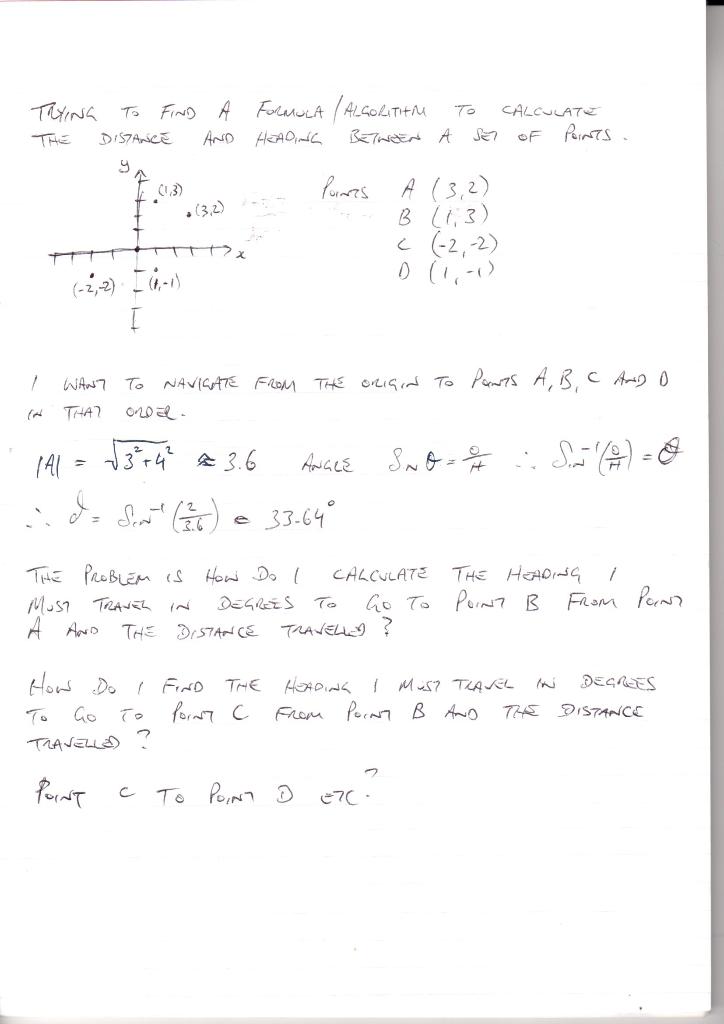 TRYING TO FIND A FORMULA/ALGORITHM TO CALCULATE
THE DISTANCE AND HEADING BETWEEN A SET OF POINTS.
y
(1,3)
(3,2)
x
(-2,-2)
(1,-1)
POINTS A (3,2)
B (1,3)
C (-2,-2)
D (1,-1)
I WANT TO NAVIGATE FROM THE ORIGIN TO POINTS A, B, C AND D
IN THAT ORDER.
|A| = √3²+4² ≈ 3.6 ANGLE SIN θ = O/H ∴ SIN⁻¹(O/H) = θ
∴ θ = SIN⁻¹(2/3.6) = 33.64°
THE PROBLEM IS HOW DO I CALCULATE THE HEADING I
MUST TRAVEL IN DEGREES TO GO TO POINT B FROM POINT
A AND THE DISTANCE TRAVELLED?
HOW DO I FIND THE HEADING I MUST TRAVEL IN DEGREES
TO GO TO POINT C FROM POINT B AND THE DISTANCE
TRAVELLED?
POINT C TO POINT D ETC?